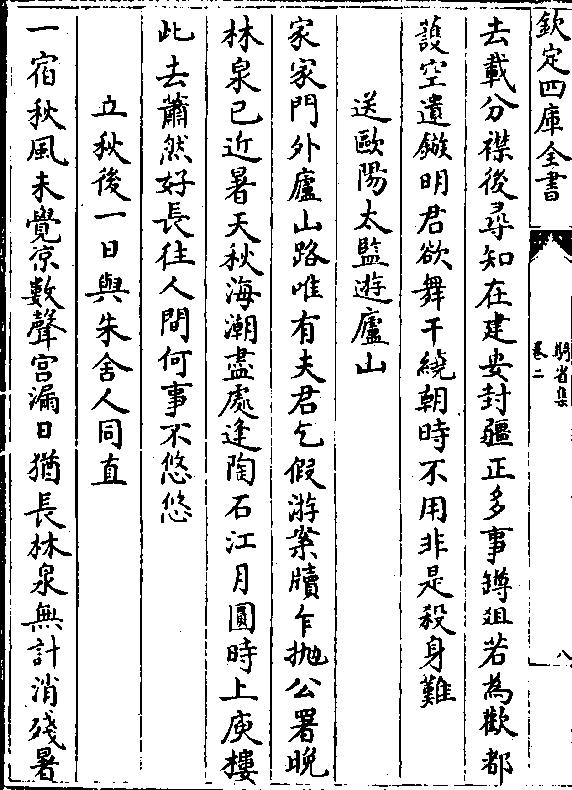 欽定四庫全書
騎省集
卷二
八
去載分襟後尋知在建安封疆正多事罇俎若為歡都
䕶空遺鏃明君欲舞干繞朝時不用非是殺身難
送歐陽太監遊廬山
家家門外廬山路唯有夫君乞假游案牘乍抛公署晚
林泉已近暑天秋海潮盡處逢陶石江月圓時上庾樓
此去蕭然好長往人間何事不悠悠
立秋後一日與朱舍人同直
一宿秋風未覺凉數聲宫漏日猶長林泉無計消殘暑